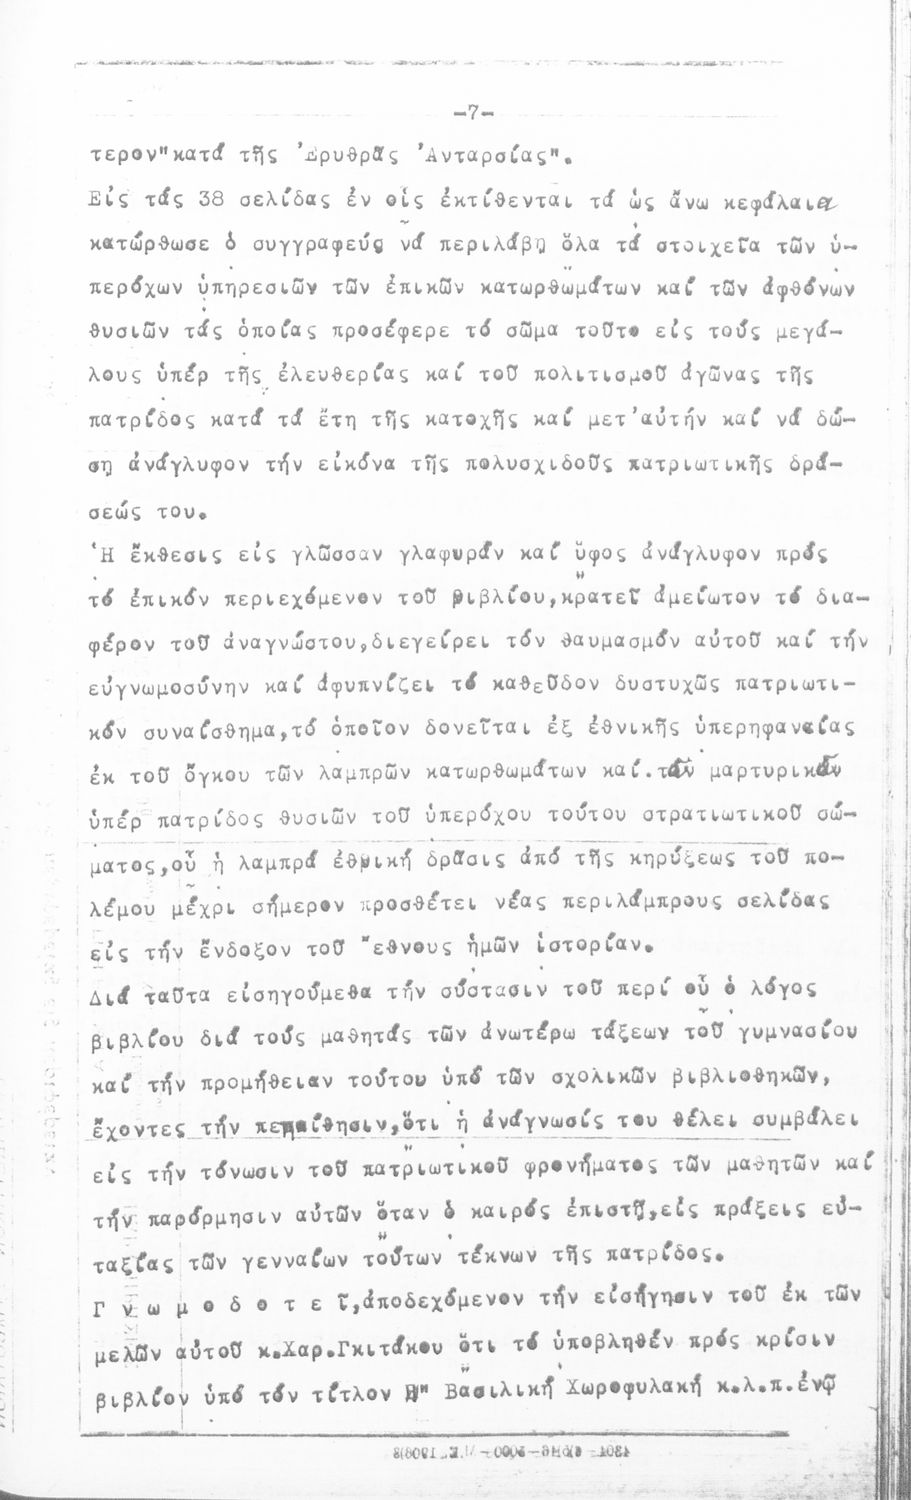 -7-
τερον"κατά τῆς Ἐρυθρᾶς Ἀνταρσίας".
Εἰς τάς 38 σελίδας ἐν οἷς ἐκτίθενται τά ὡς ἄνω κεφάλαια
κατώρθωσε ὁ συγγραφεύς νά περιλάβῃ ὅλα τά στοιχεῖα τῶν ὑ-
περόχων ὑπηρεσιῶν τῶν ἐπικῶν κατωρθωμάτων καί τῶν ἀφθόνων
θυσιῶν τάς ὁποίας προσέφερε τό σῶμα τοῦτο εἰς τούς μεγά-
λους ὑπέρ τῆς ἐλευθερίας καί τοῦ πολιτισμοῦ ἀγῶνας τῆς
πατρίδος κατά τά ἔτη τῆς κατοχῆς καί μετ'αὐτήν καί νά δώ-
σῃ ἀνάγλυφον τήν εἰκόνα τῆς πολυσχιδοῦς πατριωτικῆς δρά-
σεώς του.
Ἡ ἔκθεσις εἰς γλῶσσαν γλαφυράν καί ὕφος ἀνάγλυφον πρός
τό ἐπικόν περιεχόμενον τοῦ βιβλίου,κρατεῖ ἀμείωτον τό δια-
φέρον τοῦ ἀναγνώστου,διεγείρει τόν θαυμασμόν αὐτοῦ καί τήν
εὐγνωμοσύνην καί ἀφυπνίζει τό καθεῦδον δυστυχῶς πατριωτι-
κόν συναίσθημα,τό ὁποῖον δονεῖται ἐξ ἐθνικῆς ὑπερηφανείας
ἐκ τοῦ ὄγκου τῶν λαμπρῶν κατωρθωμάτων καί.τῶν μαρτυρικῶν
ὑπέρ πατρίδος θυσιῶν τοῦ ὑπερόχου τούτου στρατιωτικοῦ σώ-
ματος,οὗ ἡ λαμπρά ἐθνική δρᾶσις ἀπό τῆς κηρύξεως τοῦ πο-
λέμου μέχρι σήμερον προσθέτει νέας περιλάμπρους σελίδας
εἰς τήν ἔνδοξον τοῦ ἔθνους ἡμῶν ἱστορίαν.
Διά ταῦτα εἰσηγούμεθα τήν σύστασιν τοῦ περί οὗ ὁ λόγος
βιβλίου διά τούς μαθητάς τῶν ἀνωτέρω τάξεων τοῦ γυμνασίου
καί τήν προμήθειαν τούτου ὑπό τῶν σχολικῶν βιβλιοθηκῶν,
ἔχοντες τήν πεποίθησιν,ὅτι ἡ ἀνάγνωσίς του θέλει συμβάλει
εἰς τήν τόνωσιν τοῦ πατριωτικοῦ φρονήματος τῶν μαθητῶν καί
τήν παρόρμησιν αὐτῶν ὅταν ὁ καιρός ἐπιστῇ,εἰς πράξεις εὐ-
ταξίας τῶν γενναίων τούτων τέκνων τῆς πατρίδος.
Γ ν ω μ ο δ ο τ ε ῖ,ἀποδεχόμενον τήν εἰσήγησιν τοῦ ἐκ τῶν
μελῶν αὐτοῦ κ.Χαρ.Γκιτάκου ὅτι τό ὑποβληθέν πρός κρίσιν
βιβλίον ὑπό τόν τίτλον " Βασιλική Χωροφυλακή κ.λ.π.ἐνῷ